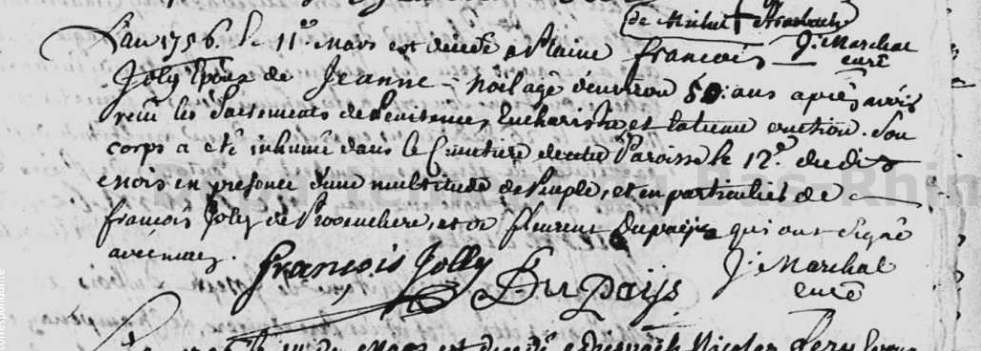 de Michel
J: Marchal
curé
L'an 1756. le 11e mars est decedé a Plaine francois
Joly Epoux de Jeanne - noël agé d'environ 50: ans aprés avoir
reçu les Sacrements de Penitence, Eucharistie, et la extreme onction. Son
corps a eté inhumé dans le Cimetiere de cette Paroisse le 12e du dit
mois en presence d'une multitude de Peuple, et en particulier de
francois Joly de et de florent Dupaijs qui ont Signé
avec moy. François Jolly
Du Paijs
J: Marchal
curé
Bas-Rhin
Nicolas